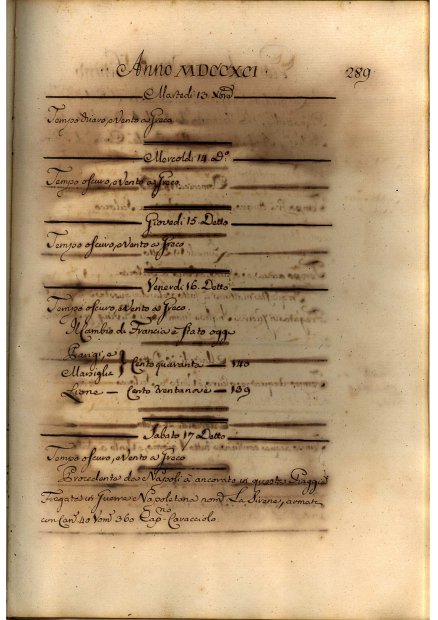 Anno MDCCXCI
289
Martedi 13 Nov.
Tempo chiaro, e Vento a Greco
Mercoldi 14 do.
Tempo oscuro, e Vento a Greco
Giovedi 15 Detto
Tempo oscuro, e Vento a Greco
Venerdi 16 Detto
Tempo oscuro, e Vento a Greco.
Il Cambio di Francia è stato oggi
Parigi, e
Marsiglia } Cento quaranta — 140
Lione — Cento trentanove — 139
Sabato 17 Detto
Tempo oscuro, e Vento a Greco
Procedente da Napoli à ancorato in questa Piaggia
Fregata in Guerra Napoletana nom. La Sirena, armata
con Can. 40 Uom. 360 Cap.no Caracciolo